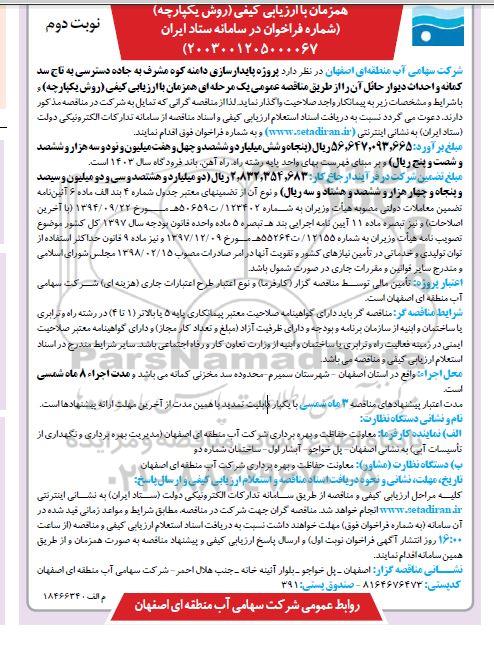 همزمان با ارزیابی کیفی (روش یکپارچه)
(شماره فراخوان در سامانه ستاد ایران
(۲۰۰۳۰۰۱۲۰۵۰۰۰۰۶۷
نوبت دوم
شرکت سهامی آب منطقه‌ای اصفهان در نظر دارد پروژه پایدارسازی دامنه کوه مشرف به جاده دسترسی به تاج سد
کمانه و احداث دیوار حائل آن را از طریق مناقصه عمومی یک مرحله ای همزمان با ارزیابی کیفی (روش یکپارچه) و
با شرایط و مشخصات زیر به پیمانکار واجد صلاحیت واگذار نماید. لذا از مناقصه گرانی که تمایل به شرکت در مناقصه مذکور
دارند، دعوت می گردد نسبت به دریافت اسناد استعلام ارزیابی کیفی و اسناد مناقصه از سامانه تدارکات الکترونیکی دولت
(ستاد ایران) به نشانی اینترنتی (www.setadiran.ir) و به شماره فراخوان فوق اقدام نمایند.
مبلغ برآورد: ۵۶,۶۴۷,۰۹۳,۶۶۵ ریال (پنجاه و شش میلیارد و ششصد و چهل و هفت میلیون و نود و سه هزار و ششصد
و شصت و پنج ریال) و بر مبنای فهرست بهای واحد پایه رشته راه، راه آهن، باند فرودگاه سال ۱۴۰۳ است.
مبلغ تضمین شرکت در فرآیند ارجاع کار: ۲,۸۳۲,۳۵۴,۶۸۳ ریال (دو میلیارد و هشتصد و سی و دو میلیون و سیصد
و پنجاه و چهار هزار و ششصد و هشتاد و سه ریال) و نوع آن از تضمینهای معتبر جدول شماره ۴ بند الف ماده ۶ آئین‌نامه
تضمین معاملات دولتی مصوبه هیأت وزیران به شماره ۱۲۳۴۰۲/ت۵۰۶۵۹هـ مورخ ۱۳۹۴/۰۹/۲۲ (با آخرین
اصلاحات) و نیز تبصره ماده ۱۱ آیین نامه اجرایی بند هـ تبصره ۵ ماده واحده قانون بودجه سال ۱۳۹۷ کل کشور موضوع
تصویب نامه هیأت وزیران به شماره ۱۲۱۵۵/ت۵۵۲۶۴هـ مورخ ۱۳۹۷/۱۲/۰۹ و نیز ماده ۹ قانون حداکثر استفاده از
توان تولیدی و خدماتی در تأمین نیازهای کشور و تقویت آنها در امر صادرات مصوب ۱۳۹۸/۰۲/۱۵ مجلس شورای اسلامی
و مندرج سایر قوانین و مقررات جاری در صورت شمول باشد.
اعتبار پروژه: تأمین مالی توسط مناقصه گزار (کارفرما) و نوع اعتبار طرح اعتبارات جاری (هزینه ای) شرکت سهامی
آب منطقه ای اصفهان است.
شرایط مناقصه گر: مناقصه گر باید دارای گواهینامه صلاحیت معتبر پیمانکاری پایه ۵ یا بالاتر (۱ تا ۴) در رشته راه و ترابری
یا ساختمان و ابنیه از سازمان برنامه و بودجه و دارای ظرفیت آزاد (مبلغ و تعداد کار مجاز) و دارای گواهینامه معتبر صلاحیت
ایمنی در زمینه فعالیت راه و ترابری یا ساختمان و ابنیه از وزارت تعاون کار و رفاه اجتماعی باشد. سایر شرایط مندرج در اسناد
استعلام ارزیابی کیفی و مناقصه می باشد.
محل اجراء: واقع در استان اصفهان - شهرستان سمیرم-محدوده سد مخزنی کمانه می باشد و مدت اجراء ۸ ماه شمسی
است.
مدت اعتبار پیشنهادهای مناقصه ۳ ماه شمسی با یکبار قابلیت تمدید با همین مدت از آخرین مهلت ارائه پیشنهادها است.
نام و نشانی دستگاه نظارت:
الف) نماینده کارفرما: معاونت حفاظت و بهره برداری شرکت آب منطقه ای اصفهان (مدیریت بهره برداری و نگهداری از
تأسیسات آبی) به نشانی اصفهان- پل خواجو- آبشار اول- ساختمان شماره دو
ب) دستگاه نظارت (مشاور): معاونت حفاظت و بهره برداری شرکت آب منطقه ای اصفهان
تاریخ، مهلت، نشانی و نحوه دریافت اسناد مناقصه و استعلام ارزیابی کیفی و ارسال پاسخ:
کلیه مراحل ارزیابی کیفی و مناقصه از طریق سامانه تدارکات الکترونیکی دولت (ستاد ایران) به نشانی اینترنتی
www.setadiran.ir انجام خواهد شد. مناقصه گران جهت شرکت در مناقصه مطابق شرایط و مواعد زمانی قید شده در
آن سامانه (به شماره فراخوان فوق) مهلت خواهند داشت نسبت به دریافت اسناد استعلام ارزیابی کیفی و مناقصه (از ساعت
۱۶:۰۰ روز انتشار آگهی فراخوان نوبت اول) و ارسال پاسخ ارزیابی کیفی و پیشنهاد مناقصه به صورت همزمان و از طریق
همین سامانه اقدام نمایند.
نشانی مناقصه گزار: اصفهان - پل خواجو - بلوار آئینه خانه - جنب هلال احمر- شرکت سهامی آب منطقه ای اصفهان -
کدپستی: ۸۱۶۴۶۷۶۴۷۳ - صندوق پستی: ۳۹۱
م الف ۱۸۴۶۶۳۴۰
روابط عمومی شرکت سهامی آب منطقه ای اصفهان